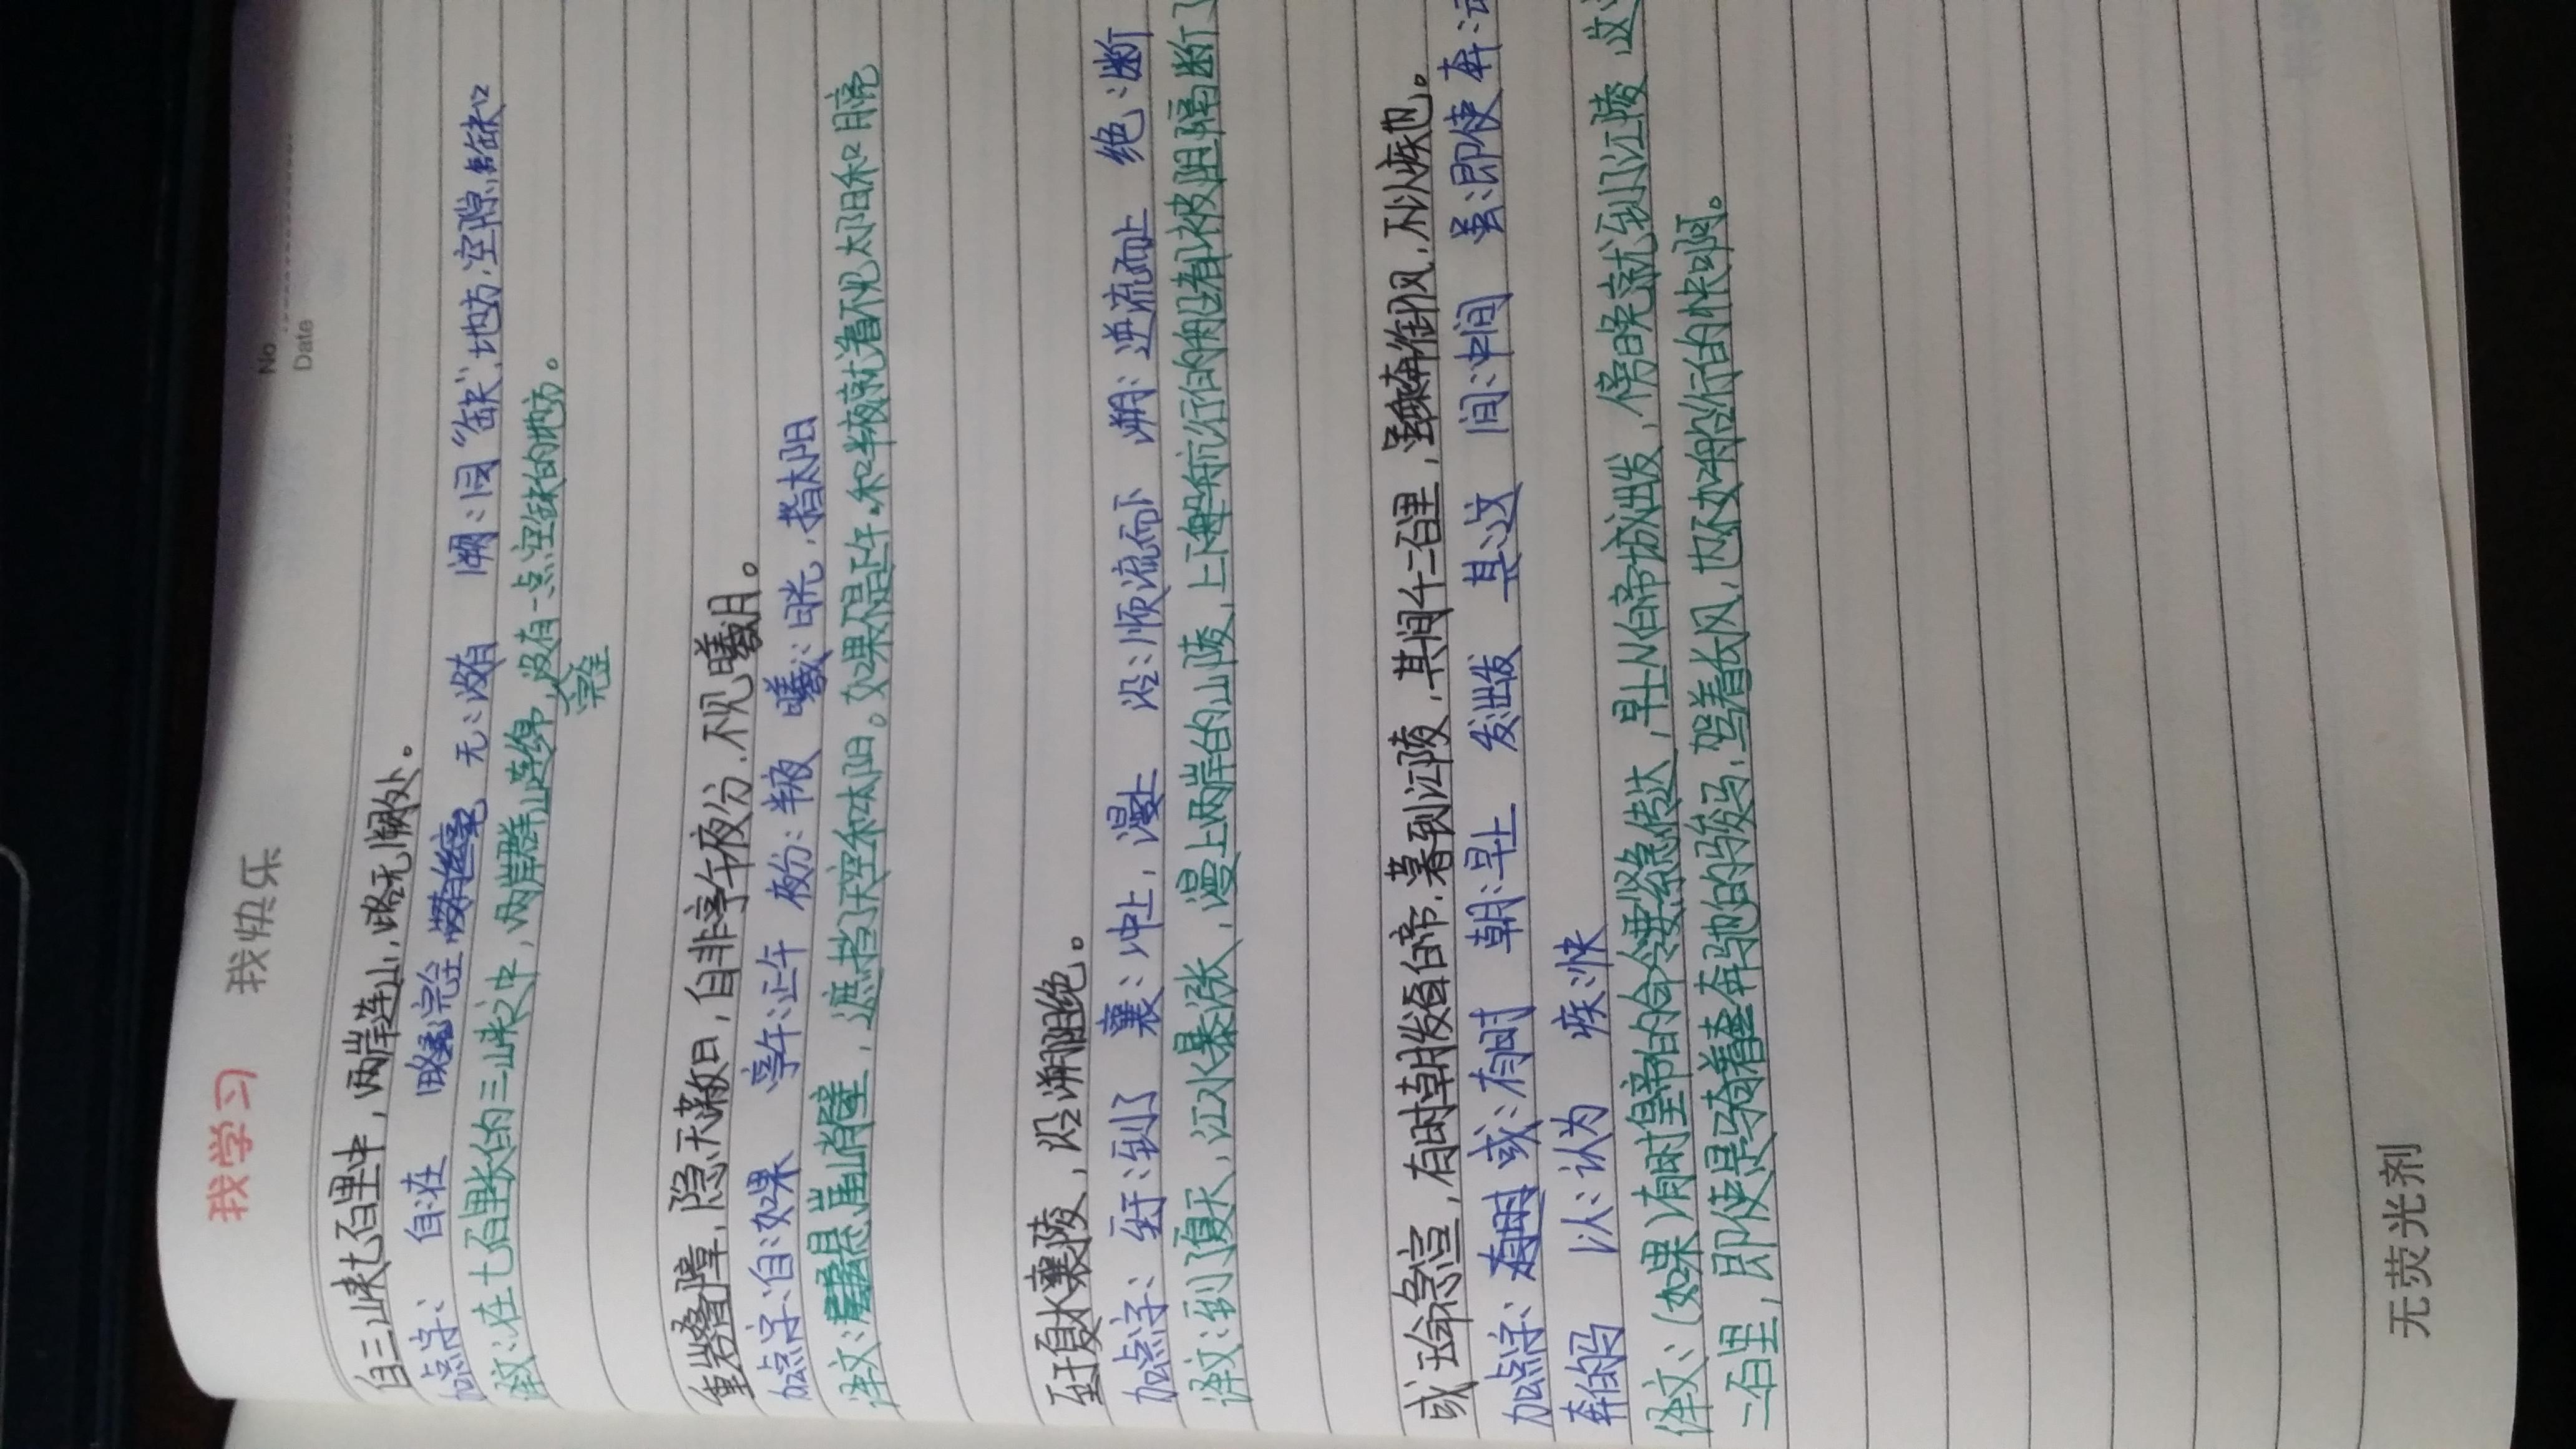 我学习 我快乐
No
Date
自三峡七百里中，两岸连山，略无阙处。
加点字：自：在 略：完全 无：没有 阙：同“缺”，地方；空隙、缺口
译文：在七百里长的三峡之中，两岸群山连绵，没有一点空缺的地方。
完全
重岩叠嶂，隐天蔽日，自非亭午夜分，不见曦月。
加点字：自：如果 亭午：正午 夜分：半夜 曦：日光，指太阳
译文：悬崖峭壁，遮挡了天空和太阳。如果不是正午和半夜就看不见太阳和月亮
至于夏水襄陵，沿溯阻绝。
加点字：至于：到了 襄：冲上，漫上 沿：顺流而下 溯：逆流而上 绝：断
译文：到了夏天，江水暴涨，漫上两岸的山陵，上下航行的船没有被阻隔断了
或王命急宣，有时朝发白帝，暮到江陵，其间千二百里，虽乘奔御风，不以疾也。
加点字：或：有时 朝：早上 发：出发 其：这 间：中间 虽：即使 奔：
奔的马 以：认为 疾：快
译文：（如果）有时皇帝的命令要紧急传达，早上从白帝城出发，傍晚就到了江陵，这
二百里，即使是骑着奔驰的骏马，驾着长风，也不如船行的快啊。
无荧光剂